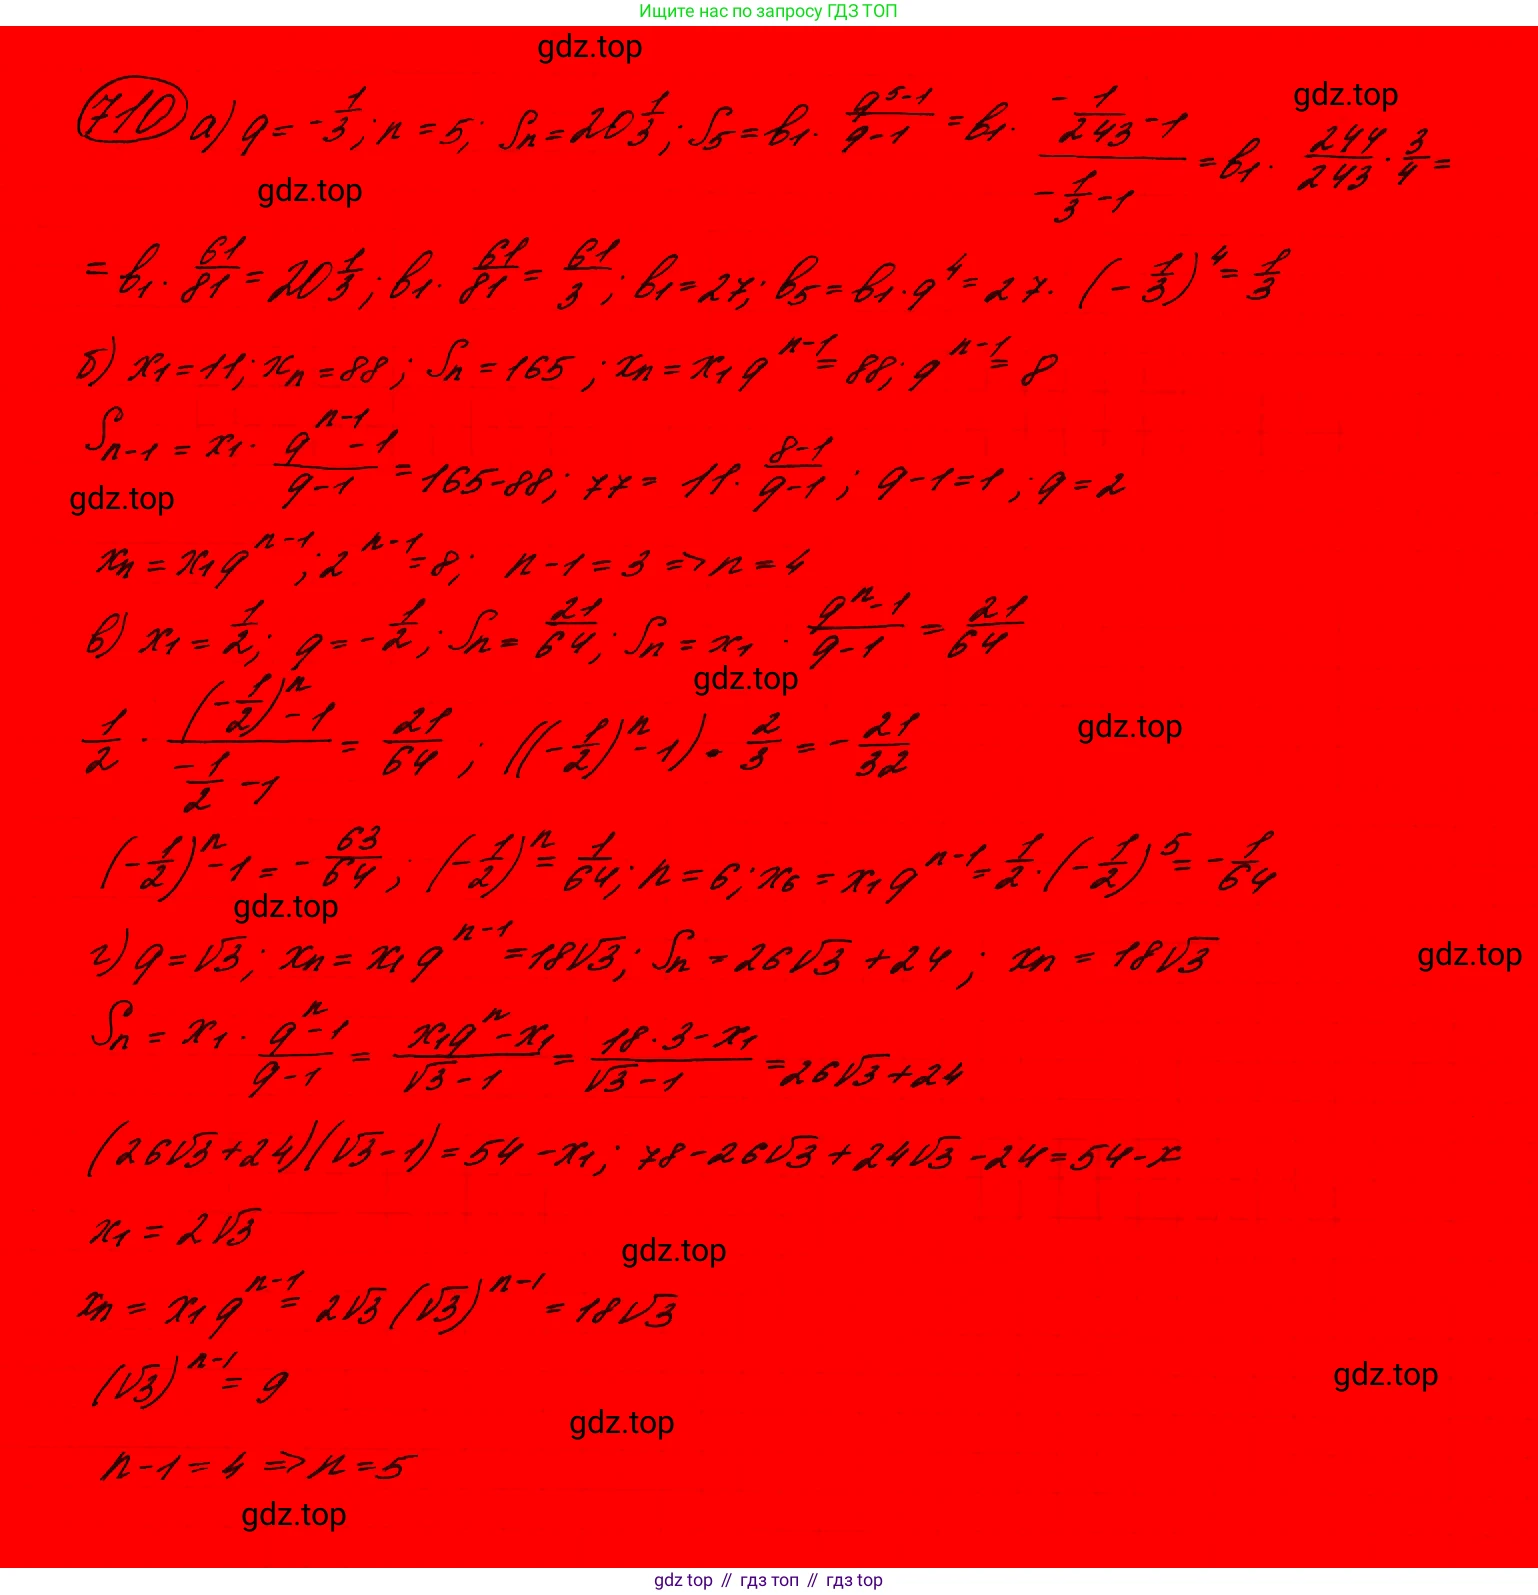 Ищите нас по запросу ГДЗ ТОП
gdz.top
710 а) q = -1/3; n = 5; Sn = 20 1/3; S5 = b1 · (q^5-1)/(q-1) = b1 · (-1/243 - 1)/(-1/3 - 1) = b1 · 244/243 · 3/4 =
gdz.top
gdz.top
= b1 · 61/81 = 20 1/3; b1 · 61/81 = 61/3; b1 = 27; b5 = b1 · q^4 = 27 · (-1/3)^4 = 1/3
б) x1 = 11; xn = 88; Sn = 165; xn = x1 q^(n-1) = 88; q^(n-1) = 8
Sn-1 = x1 · (q^(n-1) - 1)/(q-1) = 165-88; 77 = 11 · (8-1)/(q-1); q-1 = 1; q = 2
gdz.top
xn = x1 q^(n-1); 2^(n-1) = 8; n-1 = 3 => n = 4
в) x1 = 1/2; q = -1/2; Sn = 21/64; Sn = x1 · (q^n - 1)/(q-1) = 21/64
gdz.top
gdz.top
1/2 · ((-1/2)^n - 1)/(-1/2 - 1) = 21/64; ((-1/2)^n - 1) · 2/3 = -21/32
(-1/2)^n - 1 = -63/64; (-1/2)^n = 1/64; n = 6; x6 = x1 q^(n-1) = 1/2 · (-1/2)^5 = -1/64
gdz.top
г) q = √3; xn = x1 q^(n-1) = 18√3; Sn = 26√3 + 24; xn = 18√3
gdz.top
Sn = x1 · (q^n - 1)/(q-1) = (x1 q^n - x1)/(√3 - 1) = (18 · 3 - x1)/(√3 - 1) = 26√3 + 24
(26√3 + 24)(√3 - 1) = 54 - x1; 78 - 26√3 + 24√3 - 24 = 54 - x
x1 = 2√3
gdz.top
xn = x1 q^(n-1) = 2√3 (√3)^(n-1) = 18√3
(√3)^(n-1) = 9
gdz.top
gdz.top
n-1 = 4 => n = 5
gdz.top
gdz top // гдз топ // гдз top